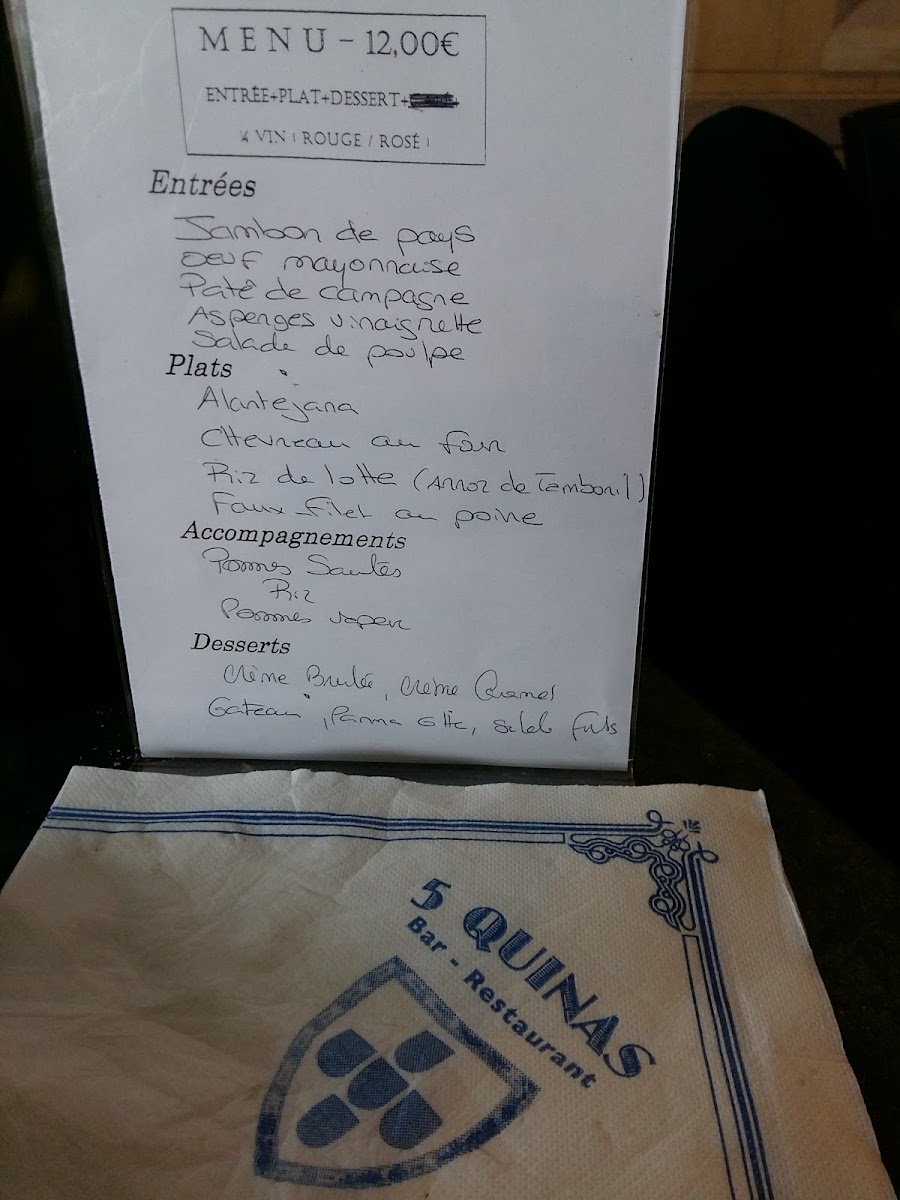 MENU - 12,00€
ENTRÉE+PLAT+DESSERT+
¼ VIN ( ROUGE / ROSÉ )
Entrées
Jambon de pays
Oeuf mayonnaise
Patê de campagne
Asperges vinaigrette
Salade de poulpe
Plats
Alantejana
Chevreau au four
Riz de lotte (Arroz de Tamboril)
Faux-filet au poivre
Accompagnements
Pommes Sautés
Riz
Pommes vapeur
Desserts
Crème Brulée, Crème Caramel
Gateau, Panna
5 QUINAS
Bar - Restaurant